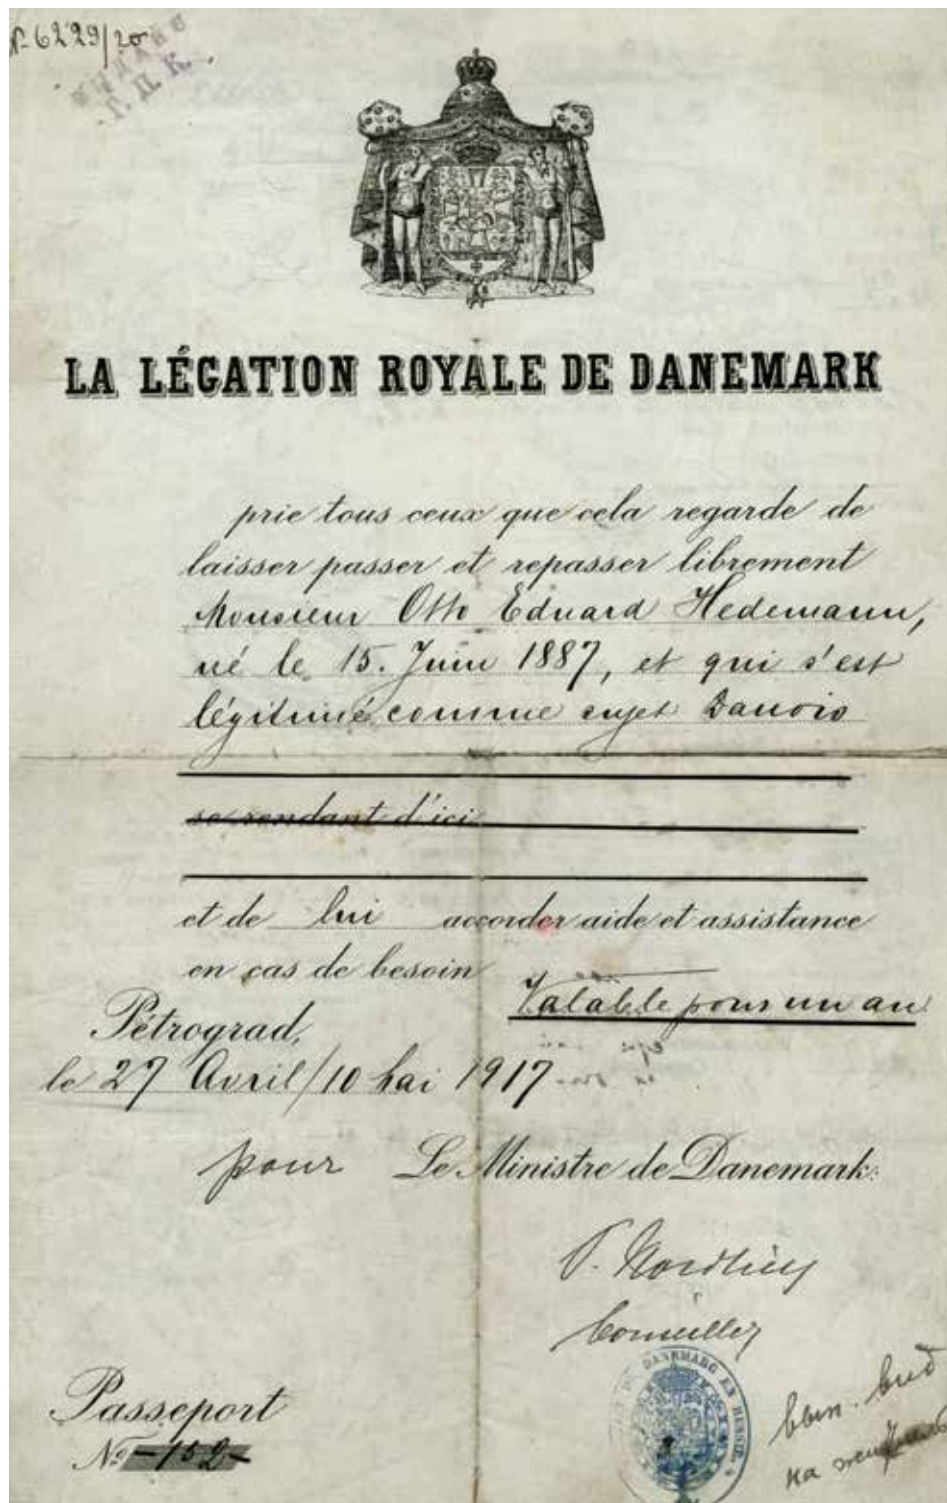 № 6229/20
Г. П. К.
LA LÉGATION ROYALE DE DANEMARK
prie tous ceux que cela regarde de
laisser passer et repasser librement
Monsieur Otto Eduard Hedemann,
né le 15. Juin 1887, et qui s'est
légitimé comme sujet Danois
se rendant d'ici
et de lui accorder aide et assistance
en cas de besoin
Valable pour un an
Pétrograd,
le 27 Avril/10 Mai 1917.
pour Le Ministre de Danemark:
Conseiller
DE DANEMARC EN RUSSIE
Passeport
№ -152-
на